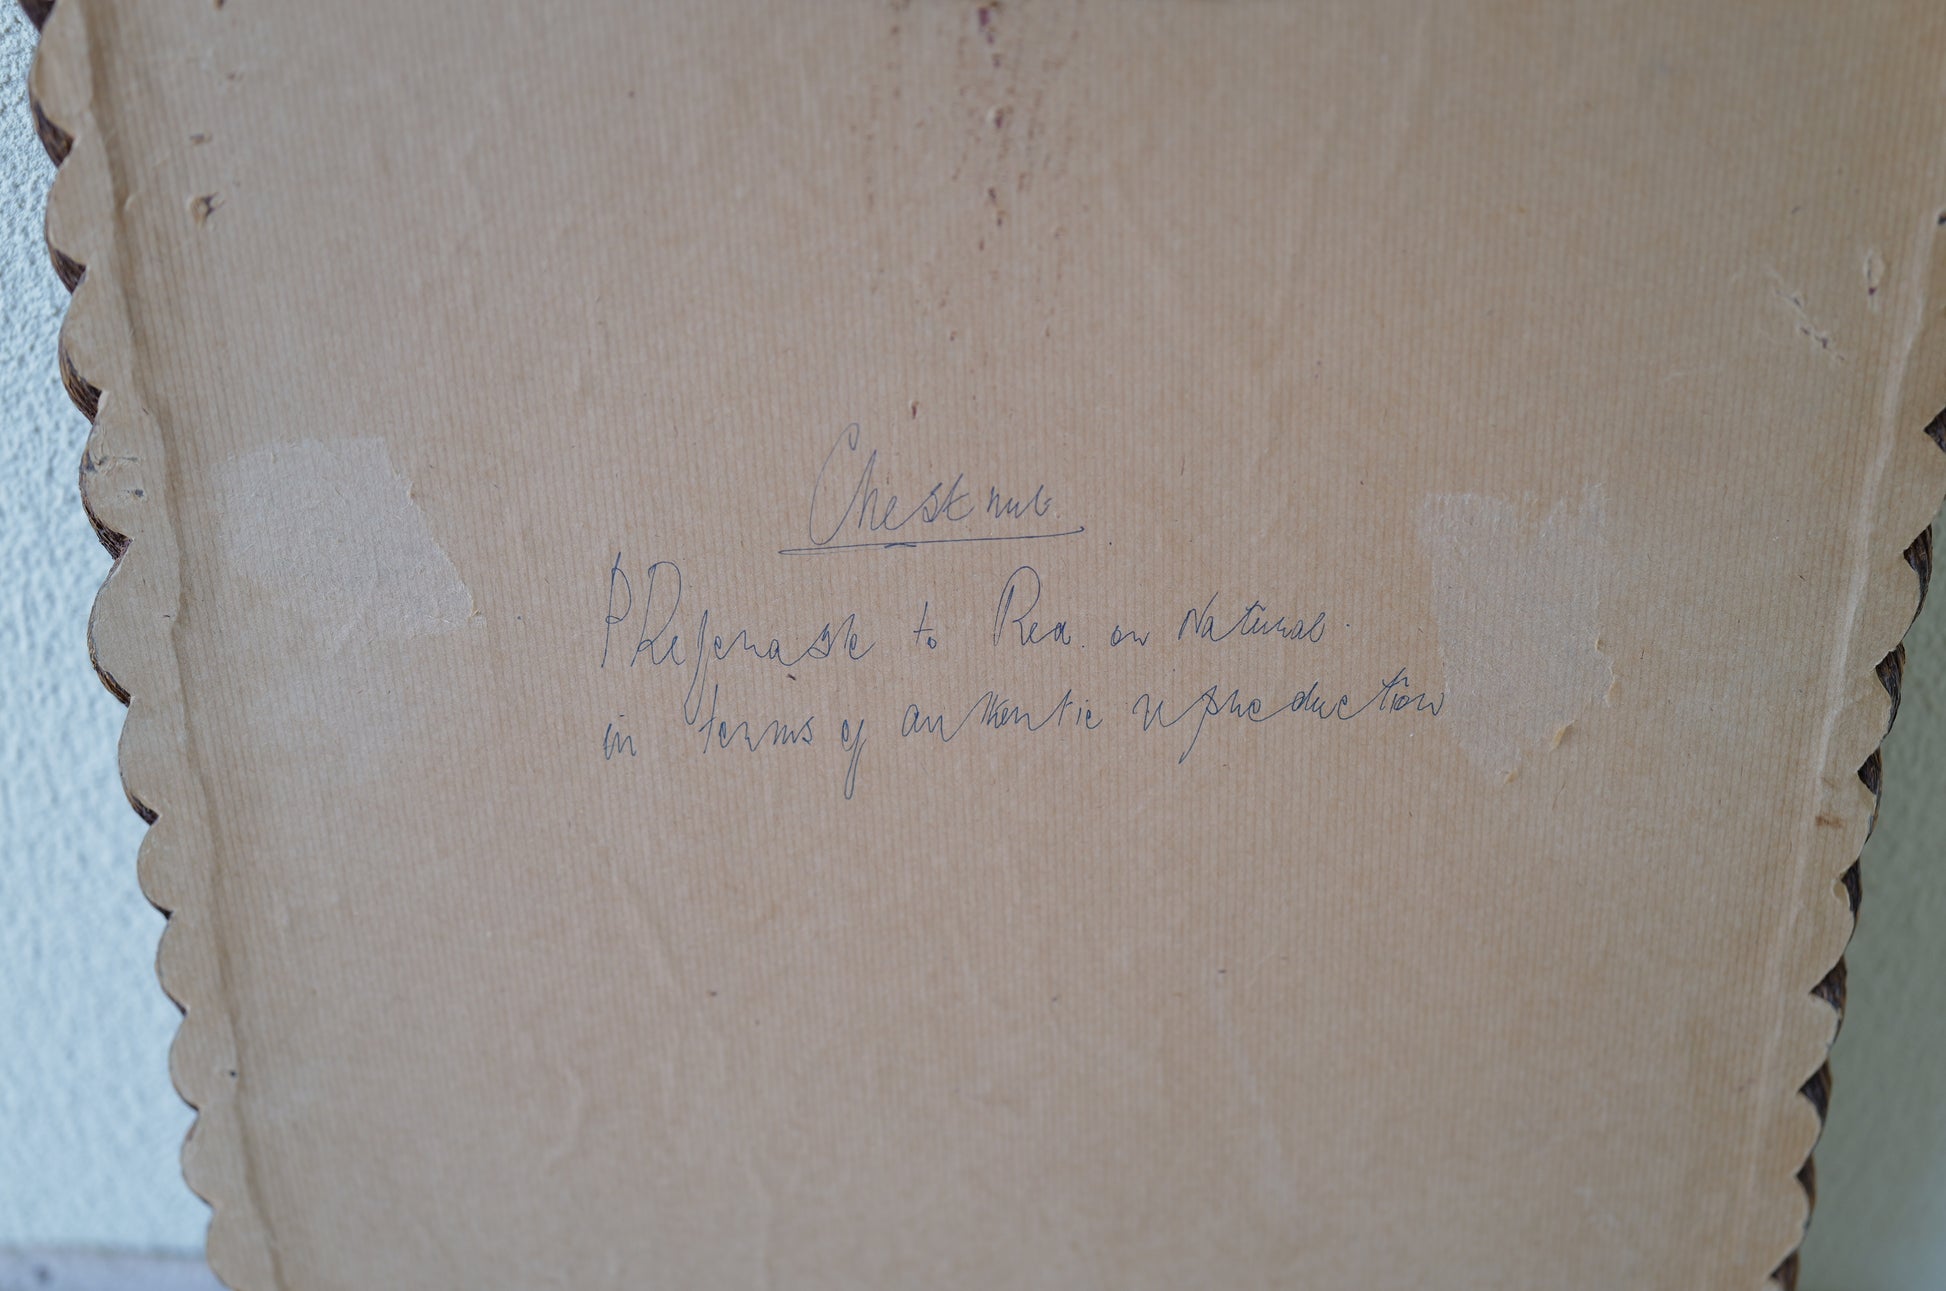 Chestnut
Preferable to Red. or Natural.
in terms of authentic reproduction